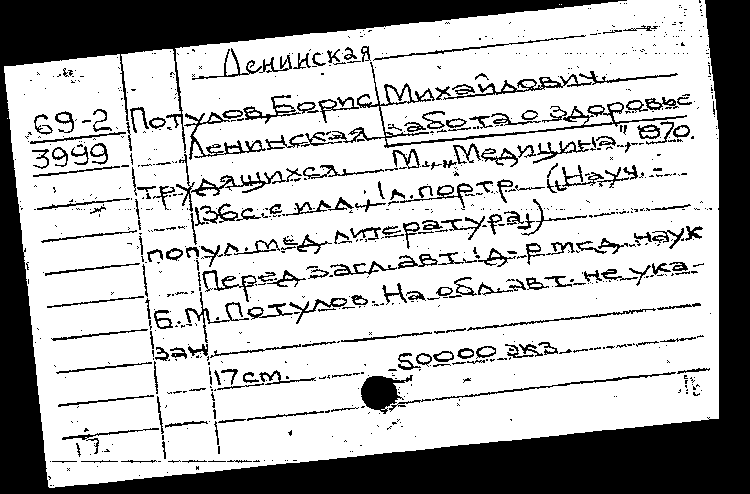 Ленинская
69-2 Потулов, Борис Михайлович.
3999 Ленинская забота о здоровье
трудящихся. М., „Медицина", 1970.
136с. с илл.; 1л. портр. („Науч.-
попул. мед. литература„)
Перед загл. авт.: д-р мед. наук
Б.М. Потулов. На обл. авт. не ука-
зан.
17 см. 50000 экз.
17